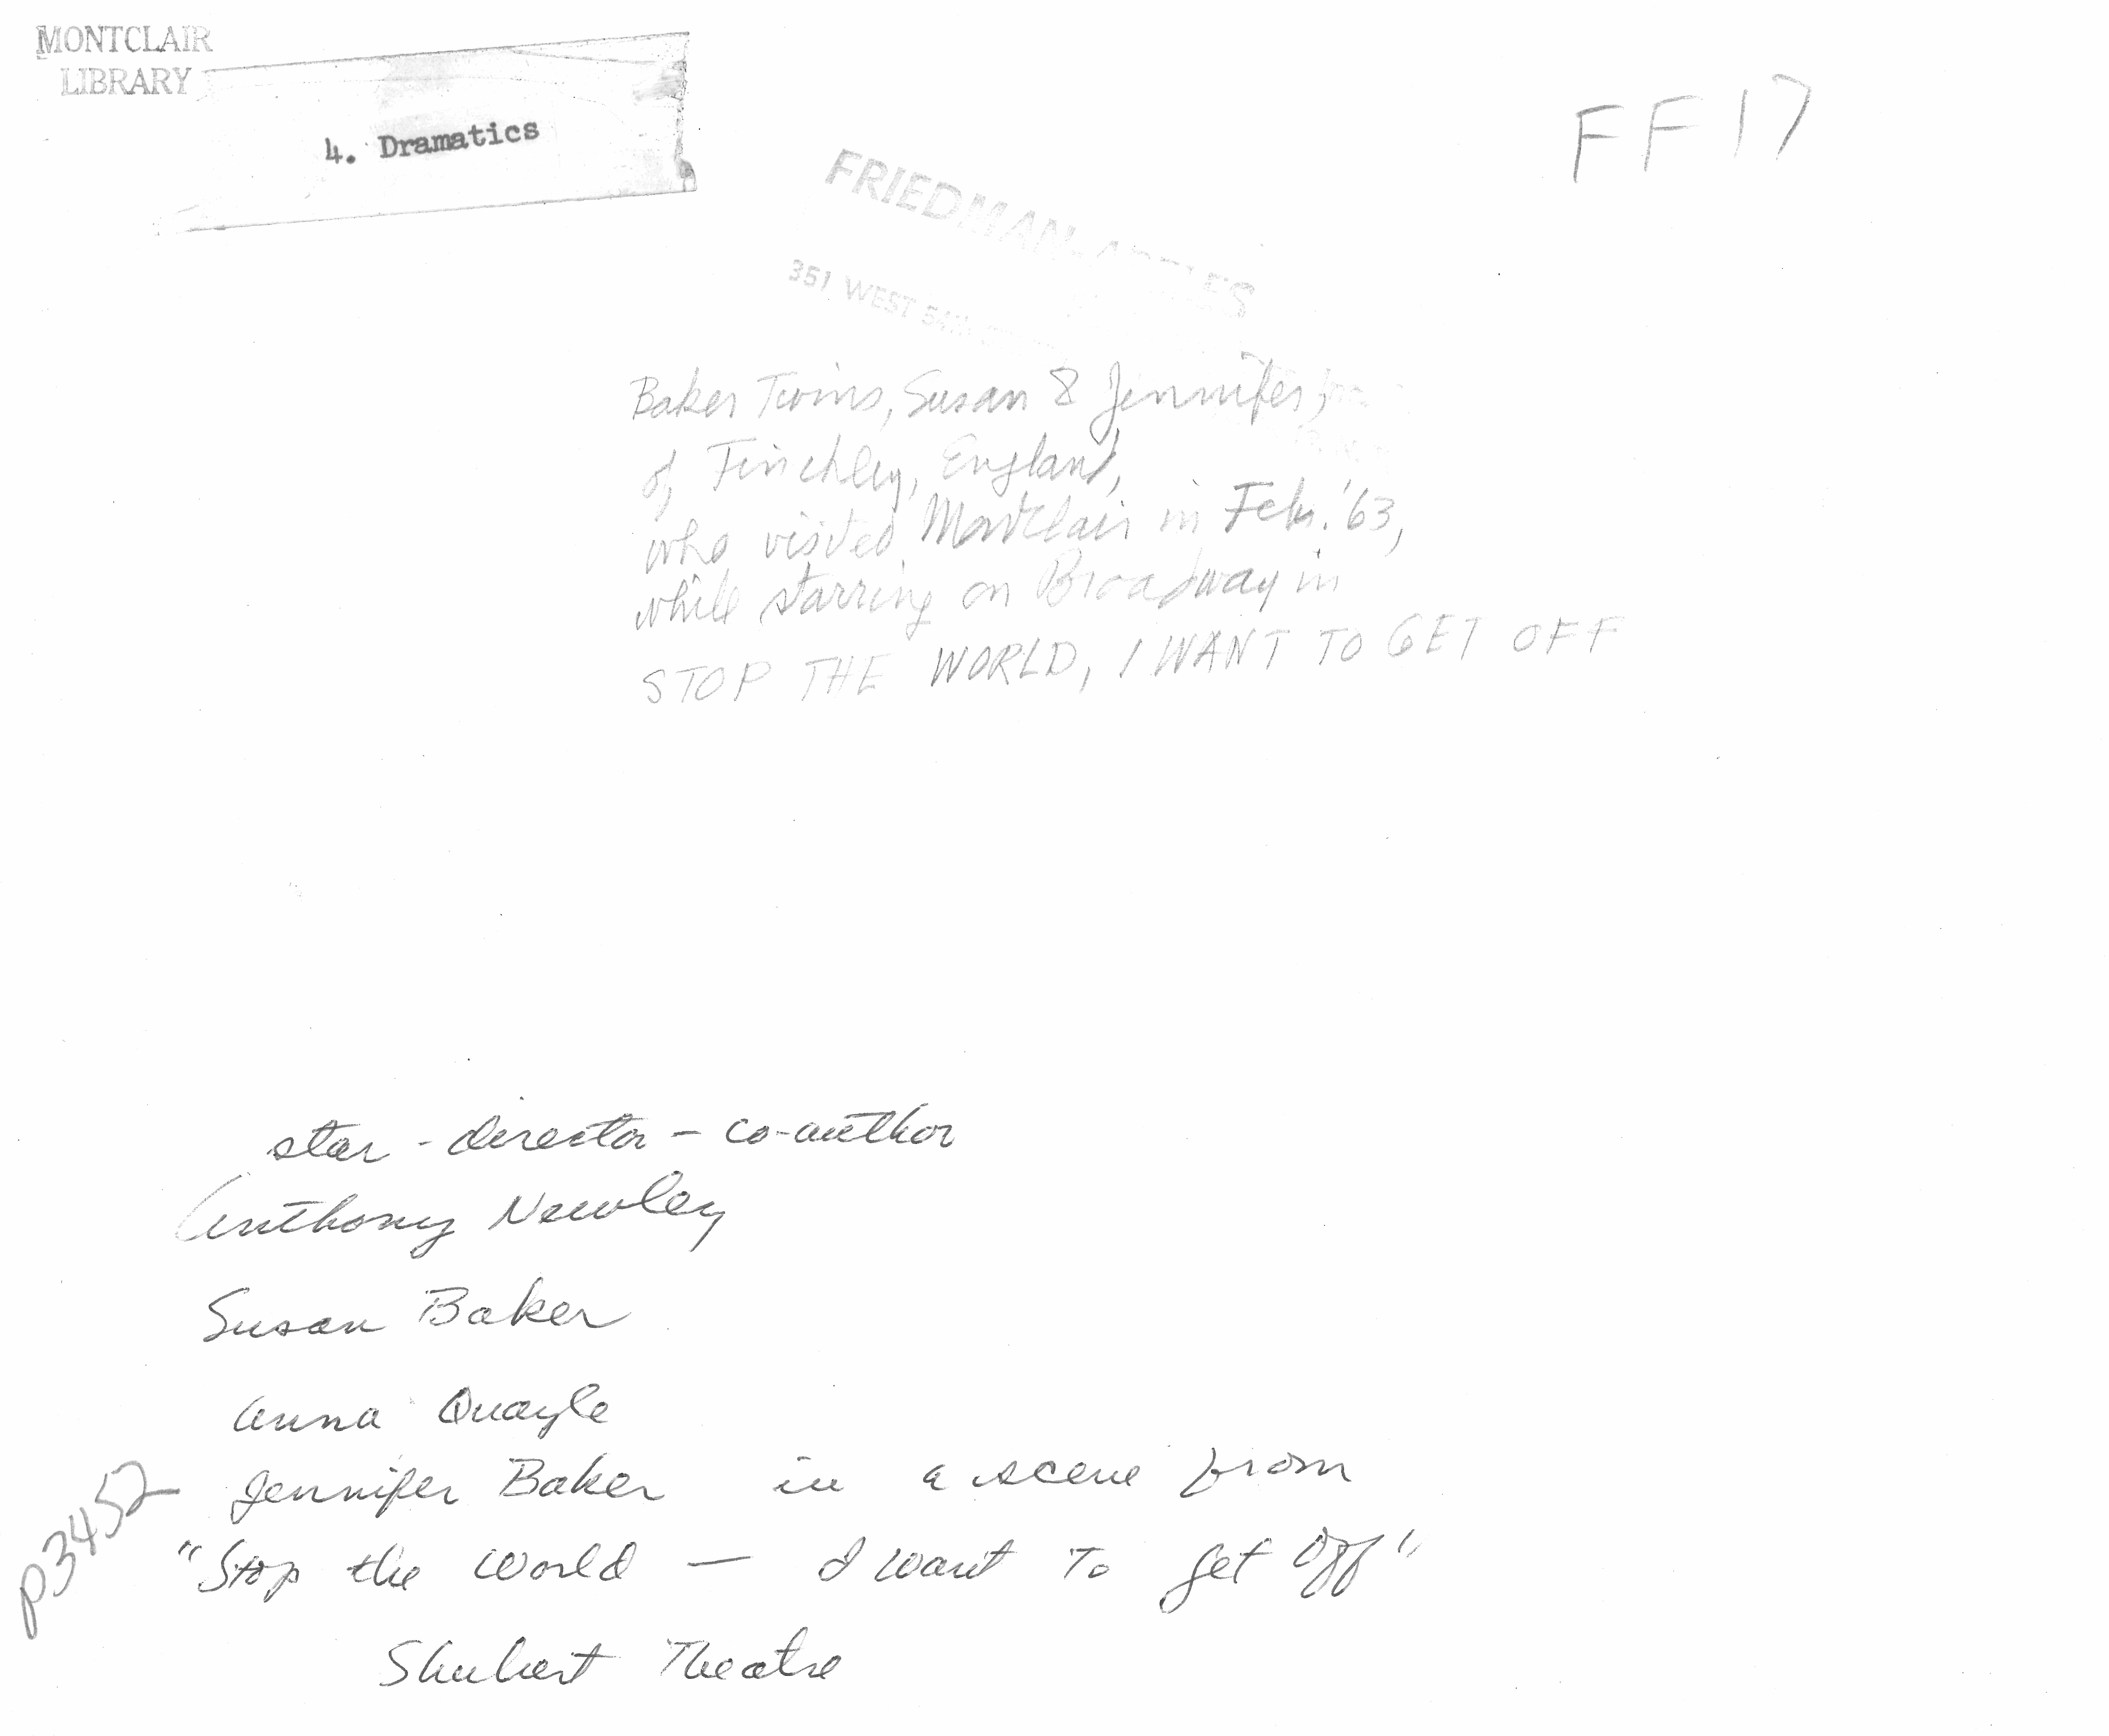 MONTCLAIR
LIBRARY
4. Dramatics
FF17
FRIEDMAN-
351 WEST 54th
Baker Twins, Susan & Jennifer,
of Finchley, England,
who visited Montclair in Feb. '63,
while starring on Broadway in
STOP THE WORLD, I WANT TO GET OFF
star - director - co-author
Anthony Newley
Susan Baker
Anna Quayle
Jennifer Baker in a scene from
"Stop the World — I Want To Get Off"
Shubert Theatre
p3452